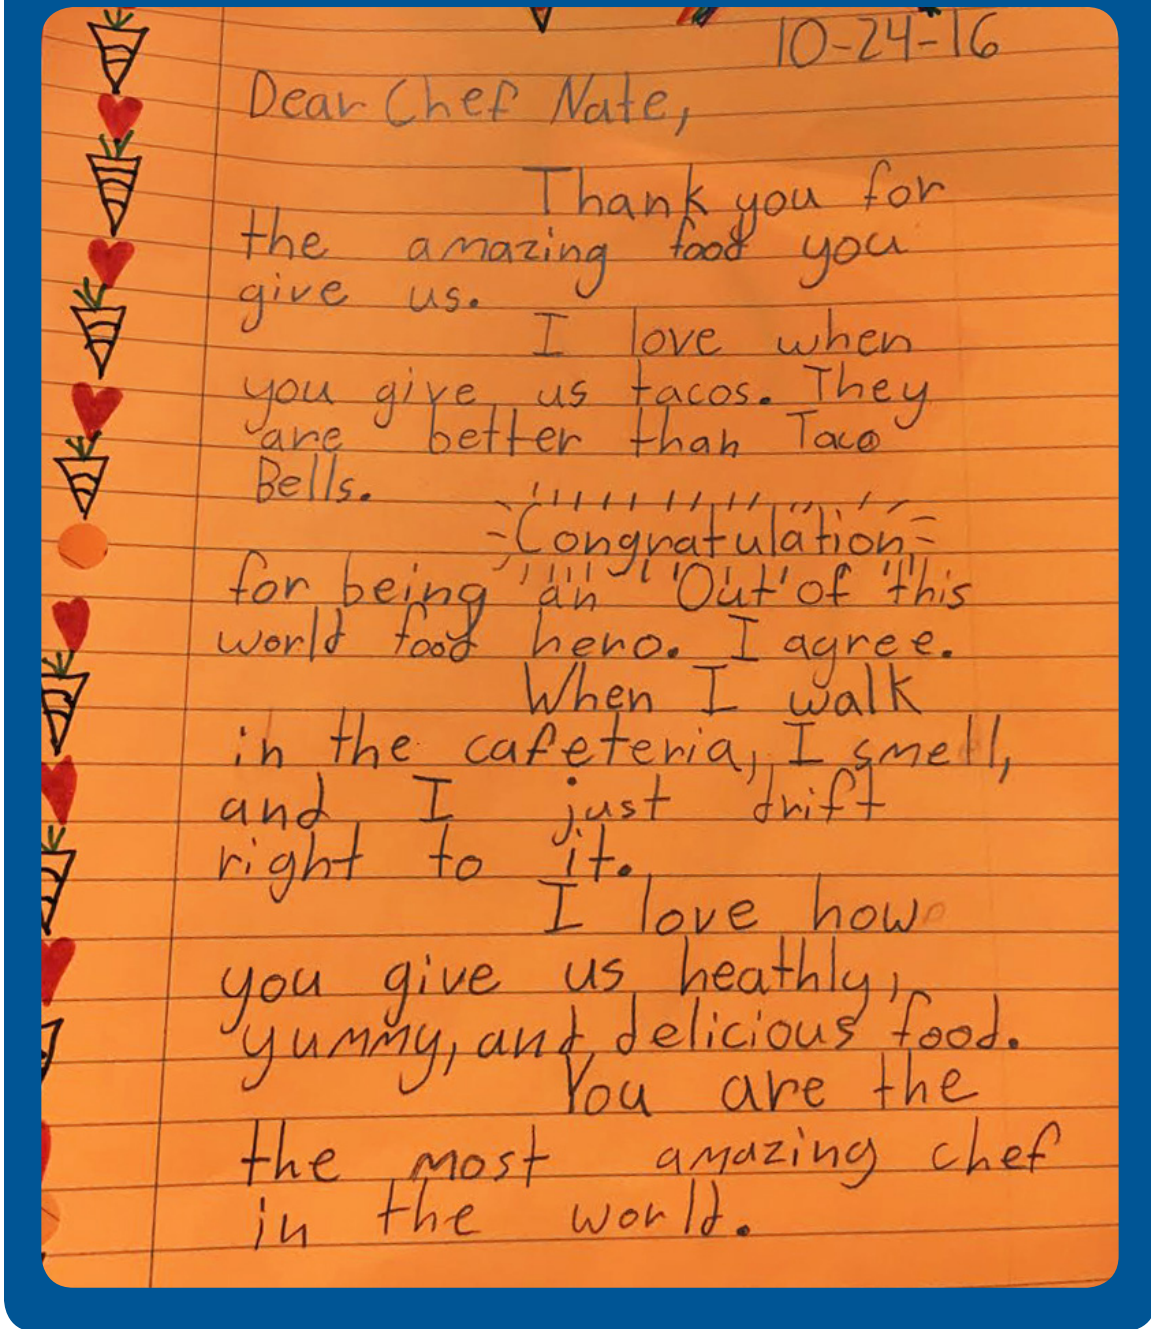 10-24-16
Dear Chef Nate,
Thank you for
the amazing food you
give us.
I love when
you give us tacos. They
are better than Taco
Bells.
Congratulation
for being an "Out of this
world food hero. I agree.
When I walk
in the cafeteria, I smell,
and I just drift
right to it.
I love how
you give us heathly,
yummy, and delicious food.
You are the
the most amazing chef
in the world.